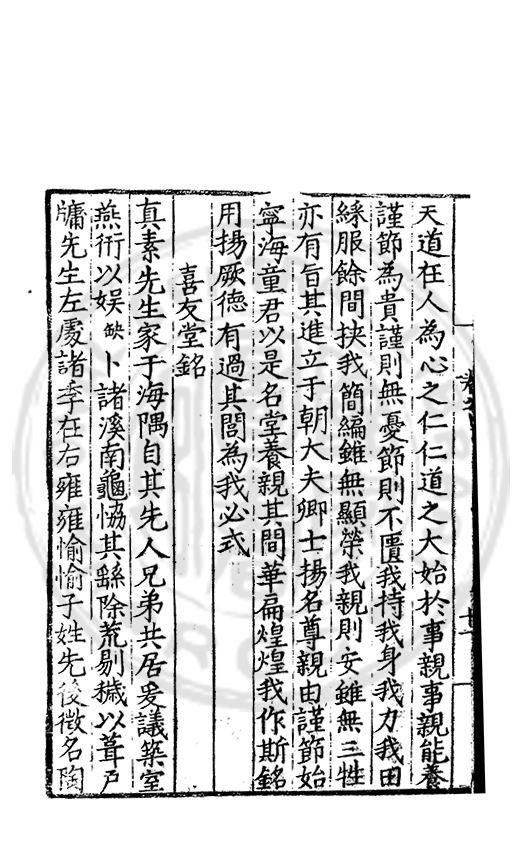 天道在人為心之仁仁道之大始於事親事親能養
謹節為貴謹則無憂節則不匱我持我身我力我田
綵服餘間挾我簡編雖無顯榮我親則安雖無三牲
亦有旨其進立于朝大夫卿士揚名尊親由謹節始
寧海童君以是名堂養親其間華扁煌煌我作斯銘
用揚厥德有過其閭為我必式
喜友堂銘
真素先生家于海隅自其先人兄弟共居爰議築室
燕衎以娛缺卜諸溪南龜恊其繇除荒剔穢以葺戸
牗先生左處諸季在右雍雍愉愉子姓先後徵名陶